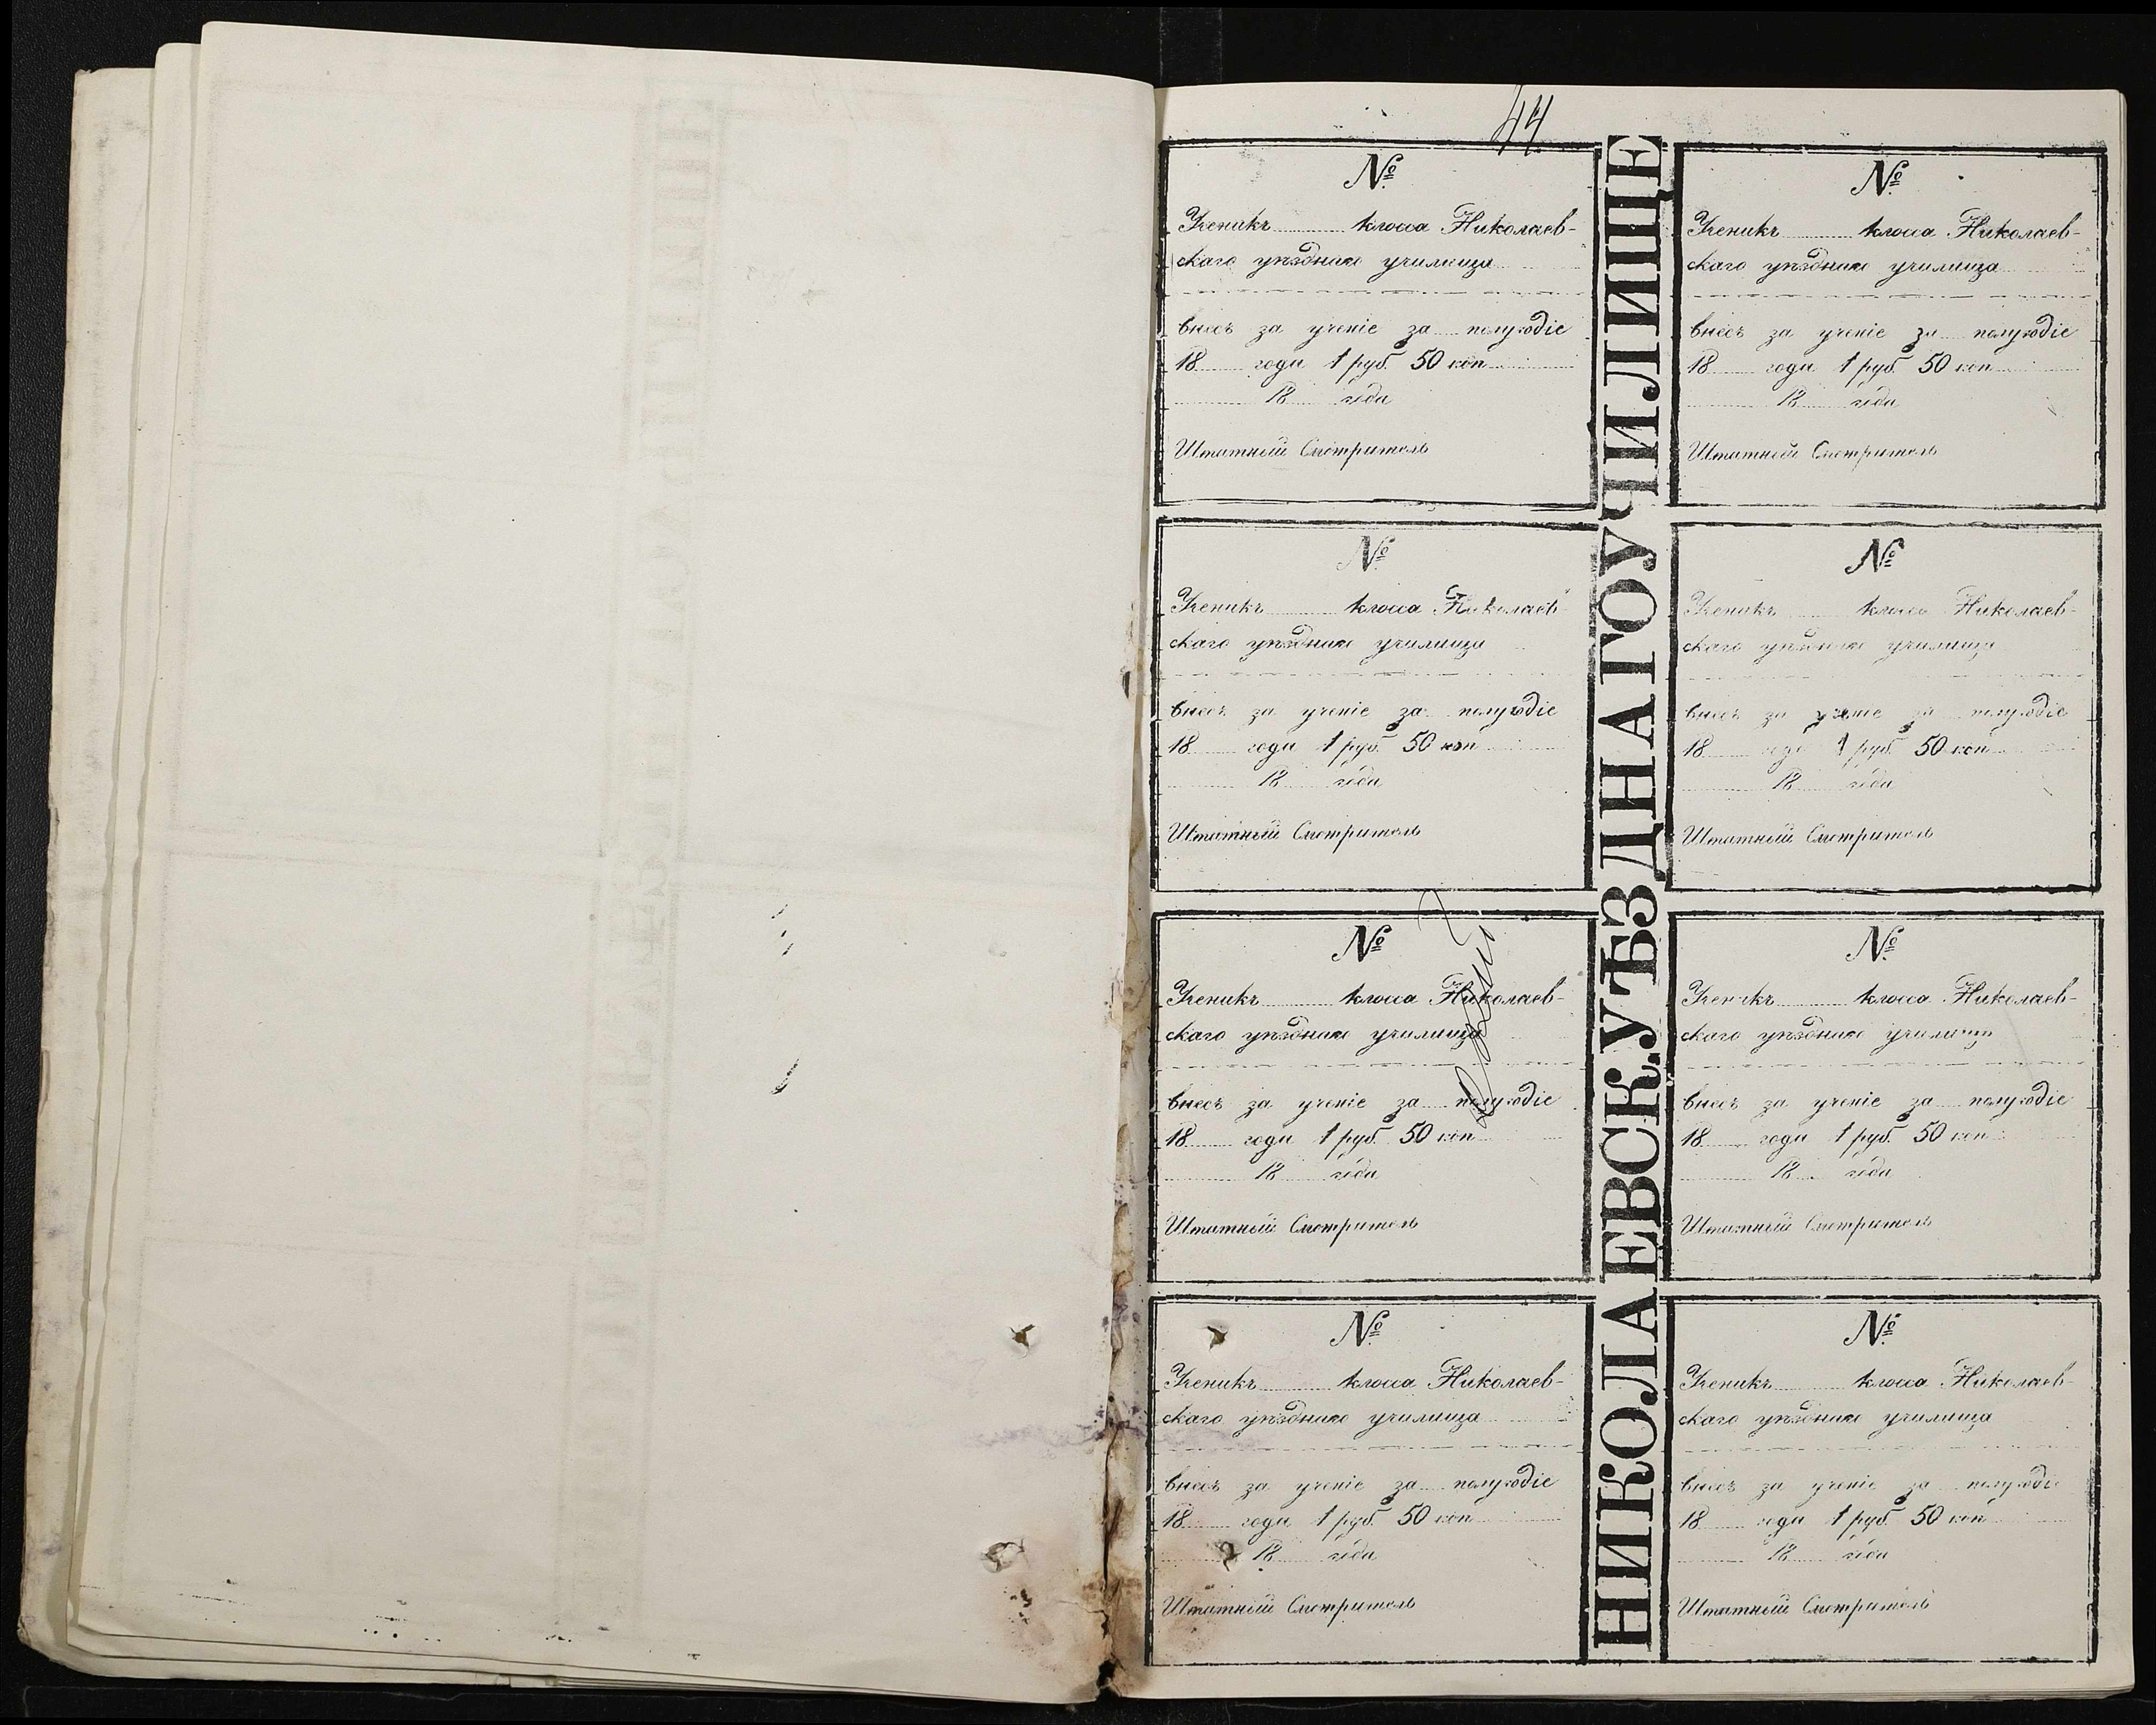 44
№
Ученикъ класса Николаев-
скаго уѣзднаго училища
внесъ за ученіе за полугодіе
18 года 1 руб. 50 коп
18 года
Штатный Смотритель
№
Ученикъ класса Николаев-
скаго уѣзднаго училища
внесъ за ученіе за полугодіе
18 года 1 руб. 50 коп
18 года
Штатный Смотритель
№
Ученикъ класса Николаев-
скаго уѣзднаго училища
внесъ за ученіе за полугодіе
18 года 1 руб. 50 коп
18 года
Штатный Смотритель
№
Ученикъ класса Николаев-
скаго уѣзднаго училища
внесъ за ученіе за полугодіе
18 года 1 руб. 50 коп
18 года
Штатный Смотритель
НИКОЛАЕВСК. УѢЗДНАГО УЧИЛИЩЕ
№
Ученикъ класса Николаев-
скаго уѣзднаго училища
внесъ за ученіе за полугодіе
18 года 1 руб. 50 коп
18 года
Штатный Смотритель
№
Ученикъ класса Николаев-
скаго уѣзднаго училища
внесъ за ученіе за полугодіе
18 года 1 руб. 50 коп
18 года
Штатный Смотритель
№
Ученикъ класса Николаев-
скаго уѣзднаго училища
внесъ за ученіе за полугодіе
18 года 1 руб. 50 коп
18 года
Штатный Смотритель
№
Ученикъ класса Николаев-
скаго уѣзднаго училища
внесъ за ученіе за полугодіе
18 года 1 руб. 50 коп
18 года
Штатный Смотритель